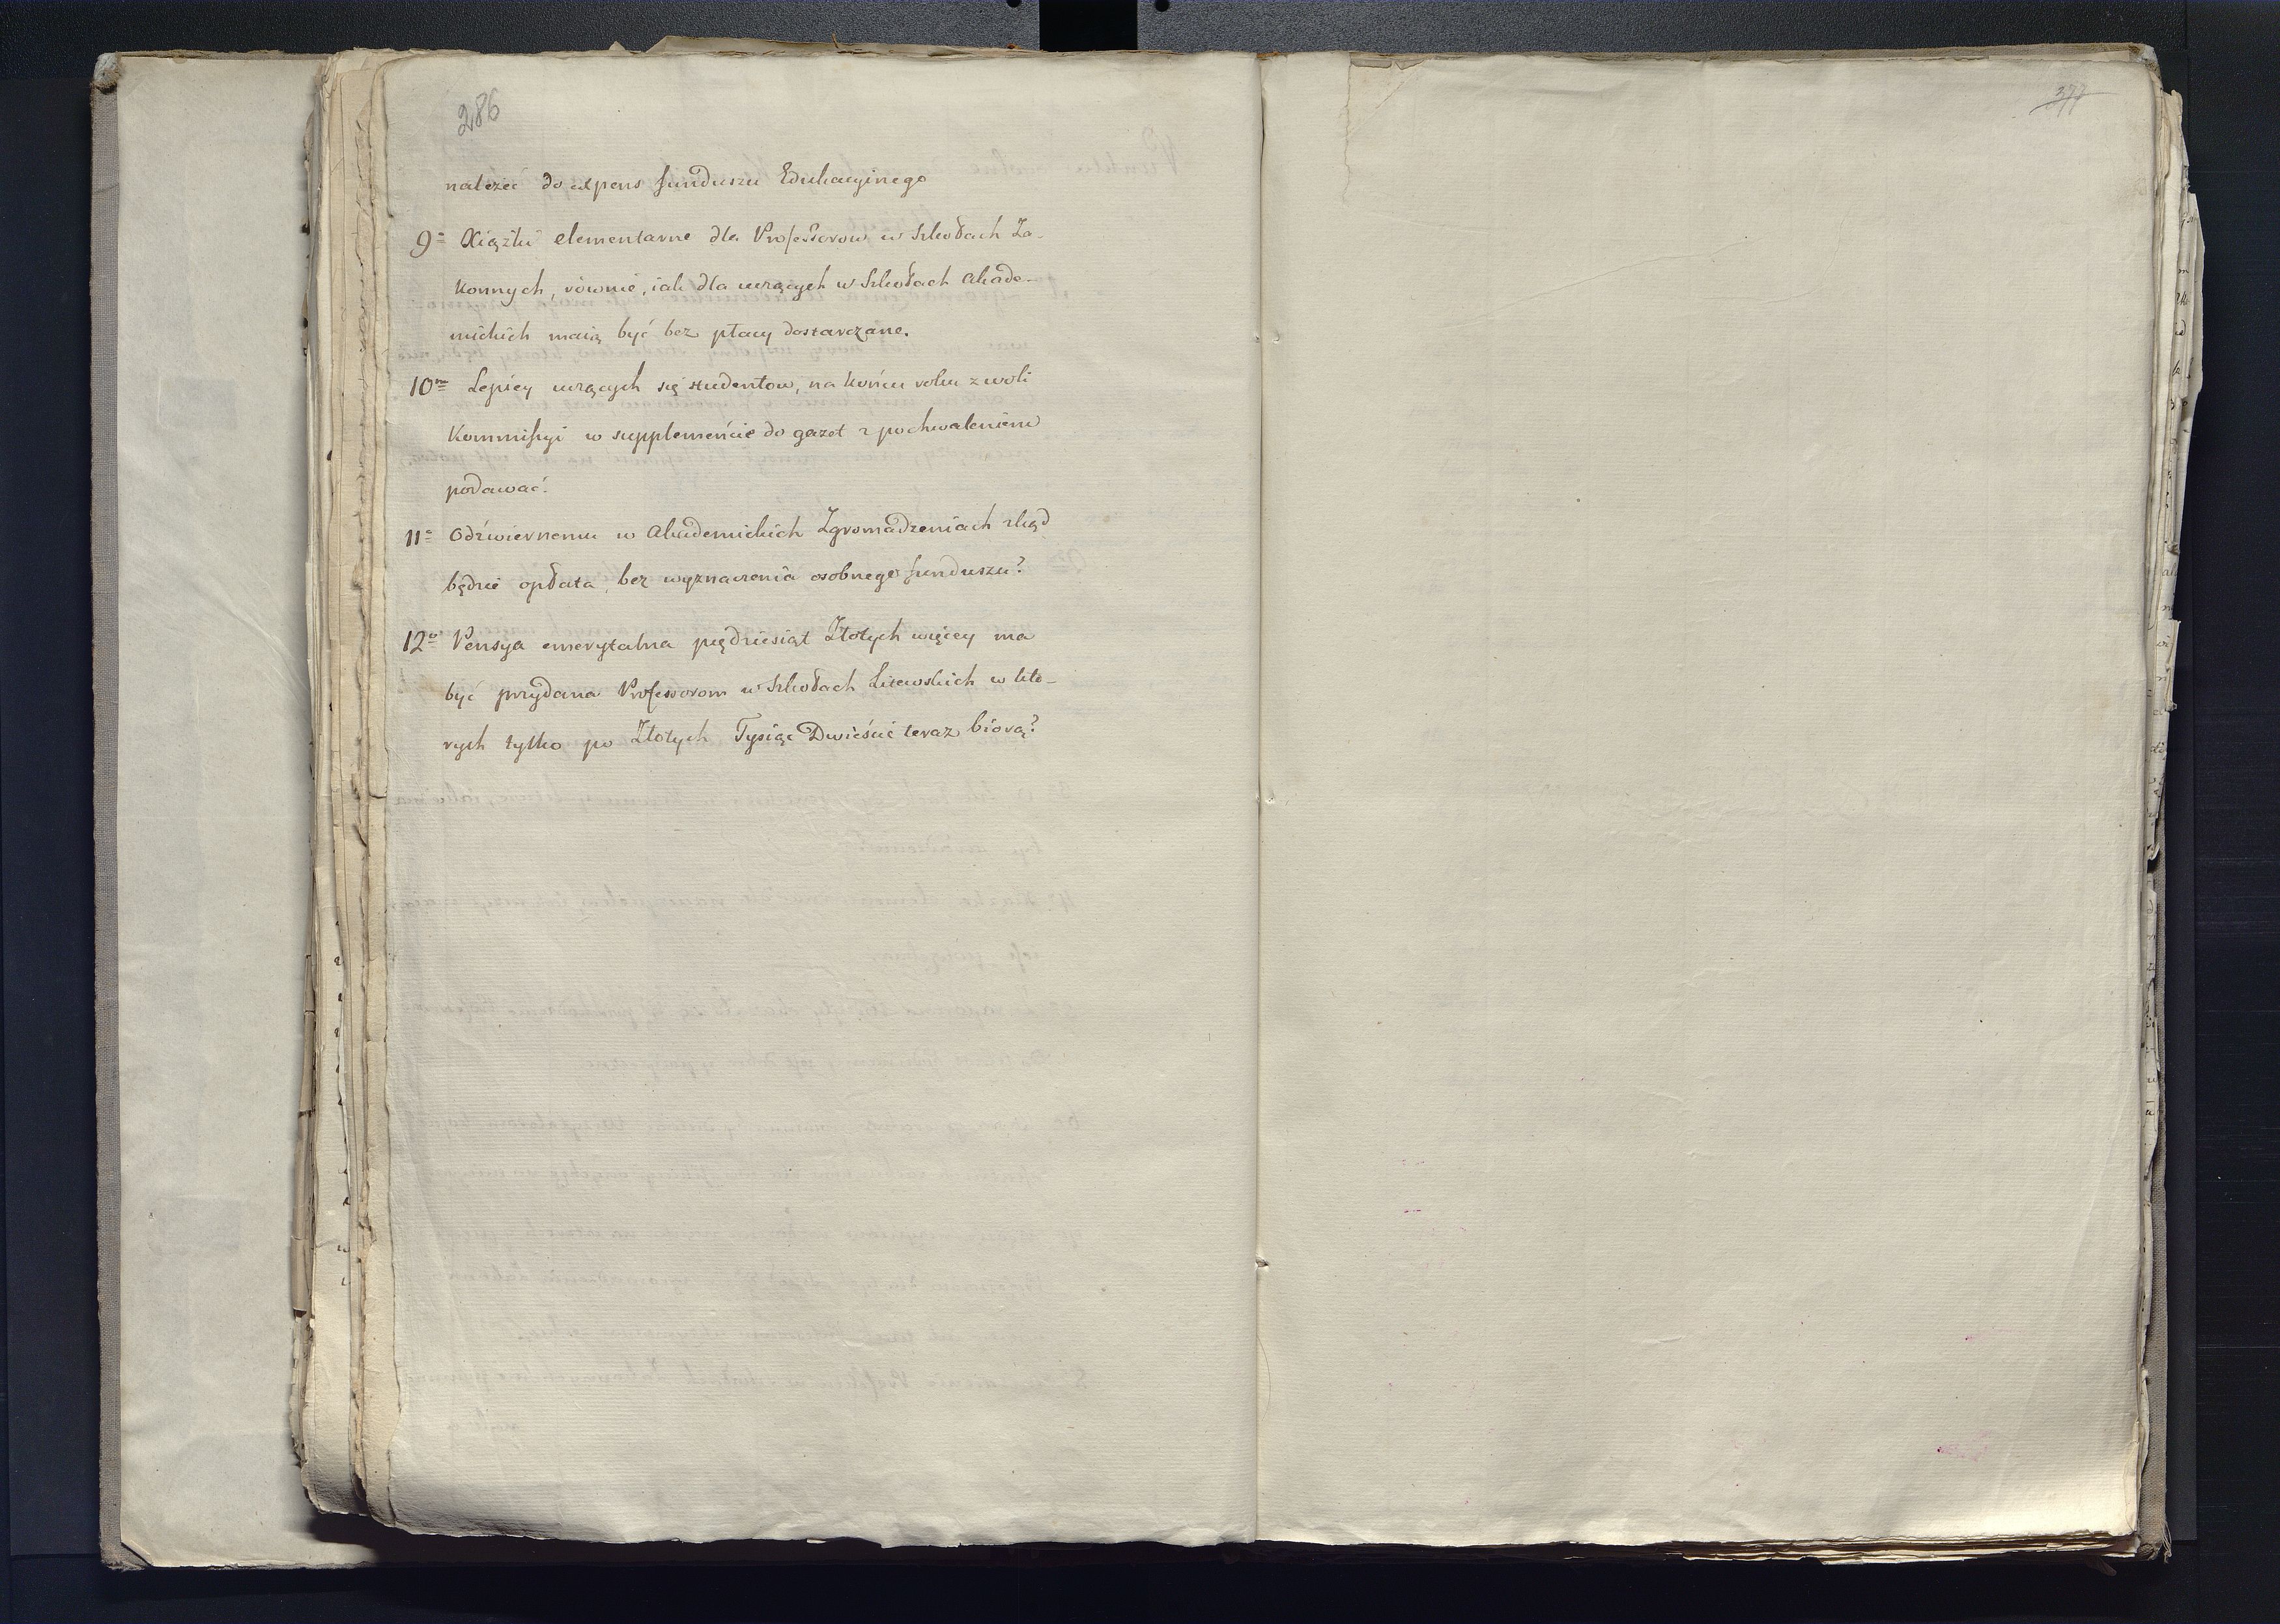 286
należeć do expens funduszu Edukacyinego
9= Xiążki elementarne dla Professorow w Szkołach Za-
konnych, równie, iak dla uczących w Szkołach Akade-
mickich maią być bez płacy dostarczane.
10mo Lepiey uczących się studentow, na końcu roku z woli
Kommissyi w supplemeńcie do gazet z pochwaleniem
podawać.
11= Odźwiernemu w Akademickich Zgromadzeniach zkąd
będzie opłata, bez wyznaczenia osobnego funduszu?
12o Pensya emerytalna piędziesiąt Złotych więcey ma
być przydana Professorom w Szkołach Litewskich w któ-
rych tylko po Złotych Tysiąc Dwieście teraz biorą?
377